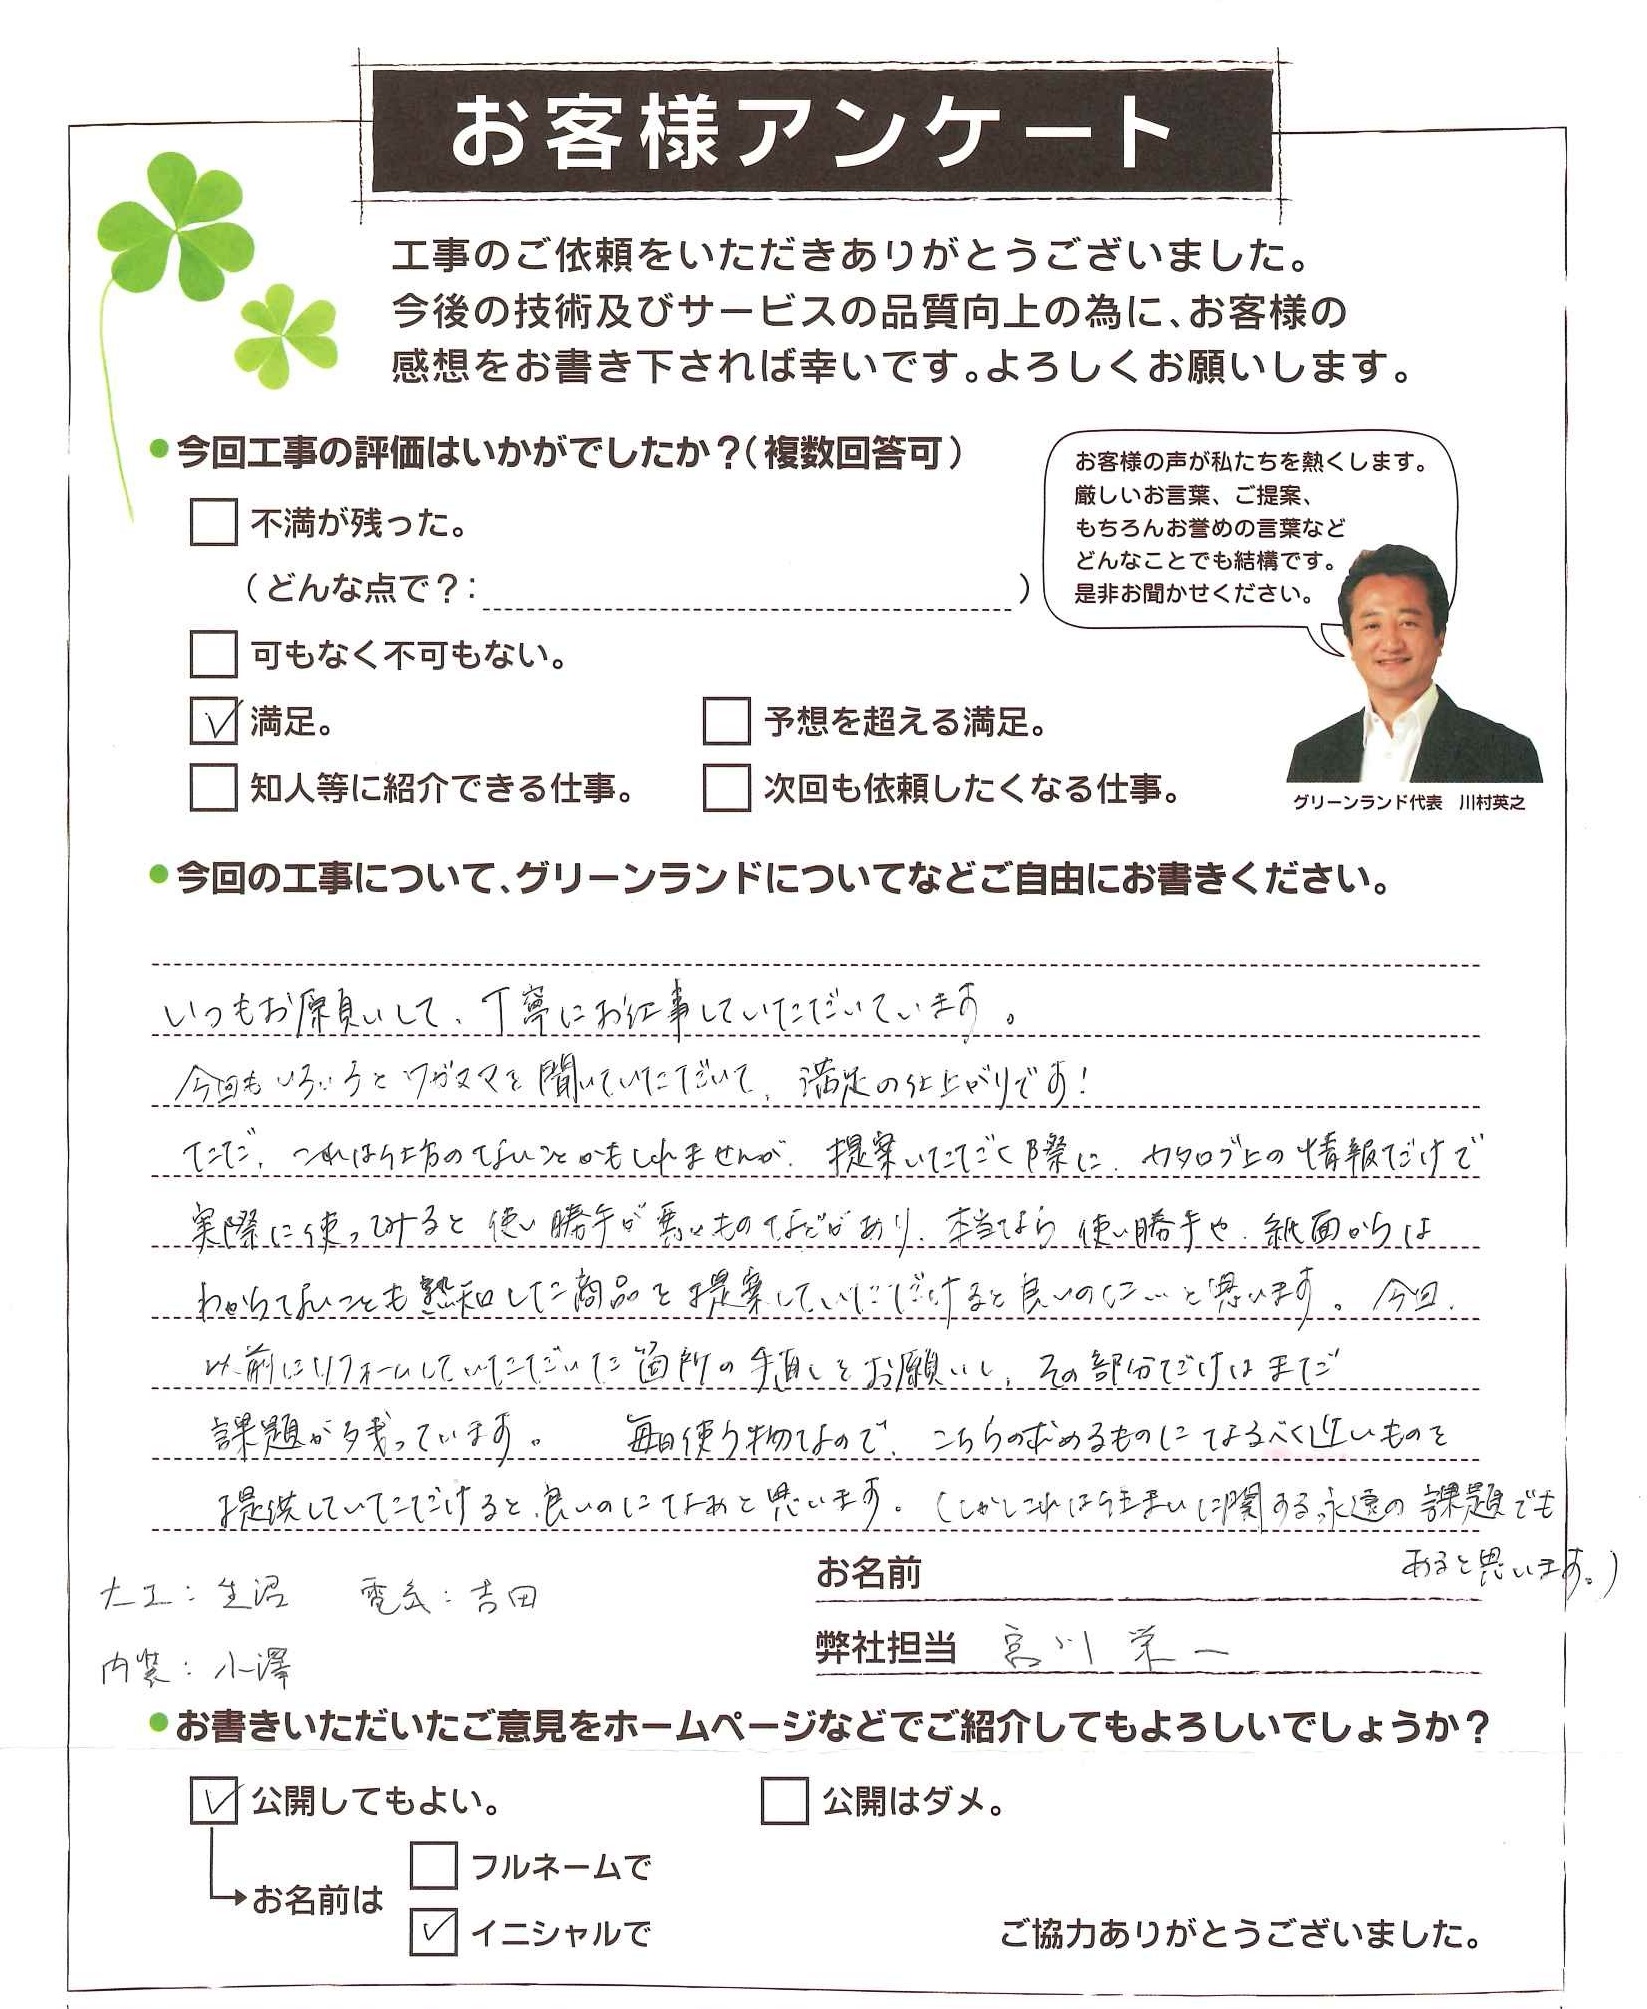 お客様アンケート
工事のご依頼をいただきありがとうございました。
今後の技術及びサービスの品質向上の為に、お客様の
感想をお書き下されば幸いです。よろしくお願いします。
●今回工事の評価はいかがでしたか?(複数回答可)
不満が残った。
(どんな点で?: )
可もなく不可もない。
満足。
予想を超える満足。
知人等に紹介できる仕事。
次回も依頼したくなる仕事。
お客様の声が私たちを熱くします。
厳しいお言葉、ご提案、
もちろんお誉めの言葉など
どんなことでも結構です。
是非お聞かせください。
グリーンランド代表 川村英之
●今回の工事について、グリーンランドについてなどご自由にお書きください。
いつもお願いして、丁寧にお仕事していただいています。
今回もいろいろとワガママを聞いていただいて、満足の仕上がりです!
ただ、これは仕方のないことかもしれませんが、提案いただく際に、カタログ上の情報だけで
実際に使ってみると使い勝手が悪いものなどがあり、本当なら使い勝手や、紙面からは
わからないことも熟知した商品を提案していただけると良いのに…と思います。今回、
以前にリフォームしていただいた箇所の手直しをお願いし、その部分だけはまだ
課題が残っています。 毎日使う物なので、こちらの求めるものになるべく近いものを
提供していただけると良いのになぁと思います。(しかしこれは住まいに関する永遠の課題でも
あると思います。)
大工:生沼 電気:吉田
内装:小澤
お名前
弊社担当 宮川栄一
●お書きいただいたご意見をホームページなどでご紹介してもよろしいでしょうか?
公開してもよい。
公開はダメ。
お名前は
フルネームで
イニシャルで
ご協力ありがとうございました。